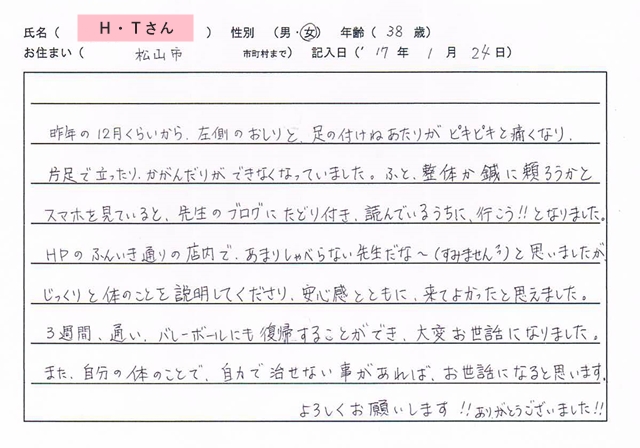 氏名（ H・Tさん ） 性別（男・女） 年齢（ 38 歳）
お住まい（ 松山市 市町村まで） 記入日（'17 年 1 月 24日）
昨年の12月くらいから、左側のおしりと、足の付けねあたりがピキピキと痛くなり、
片足で立ったり、かがんだりができなくなっていました。ふと、整体か鍼に頼ろうかと
スマホを見ていると、先生のブログにたどり付き、読んでいるうちに、行こう!!となりました。
HPのふんいき通りの店内で、あまりしゃべらない先生だな〜(すみません)と思いましたが、
じっくりと体のことを説明してくださり、安心感とともに、来てよかったと思えました。
3週間、通い、バレーボールにも復帰することができ、大変お世話になりました。
また、自分の体のことで、自力で治せない事があれば、お世話になると思います。
よろしくお願いします!!ありがとうございました!!